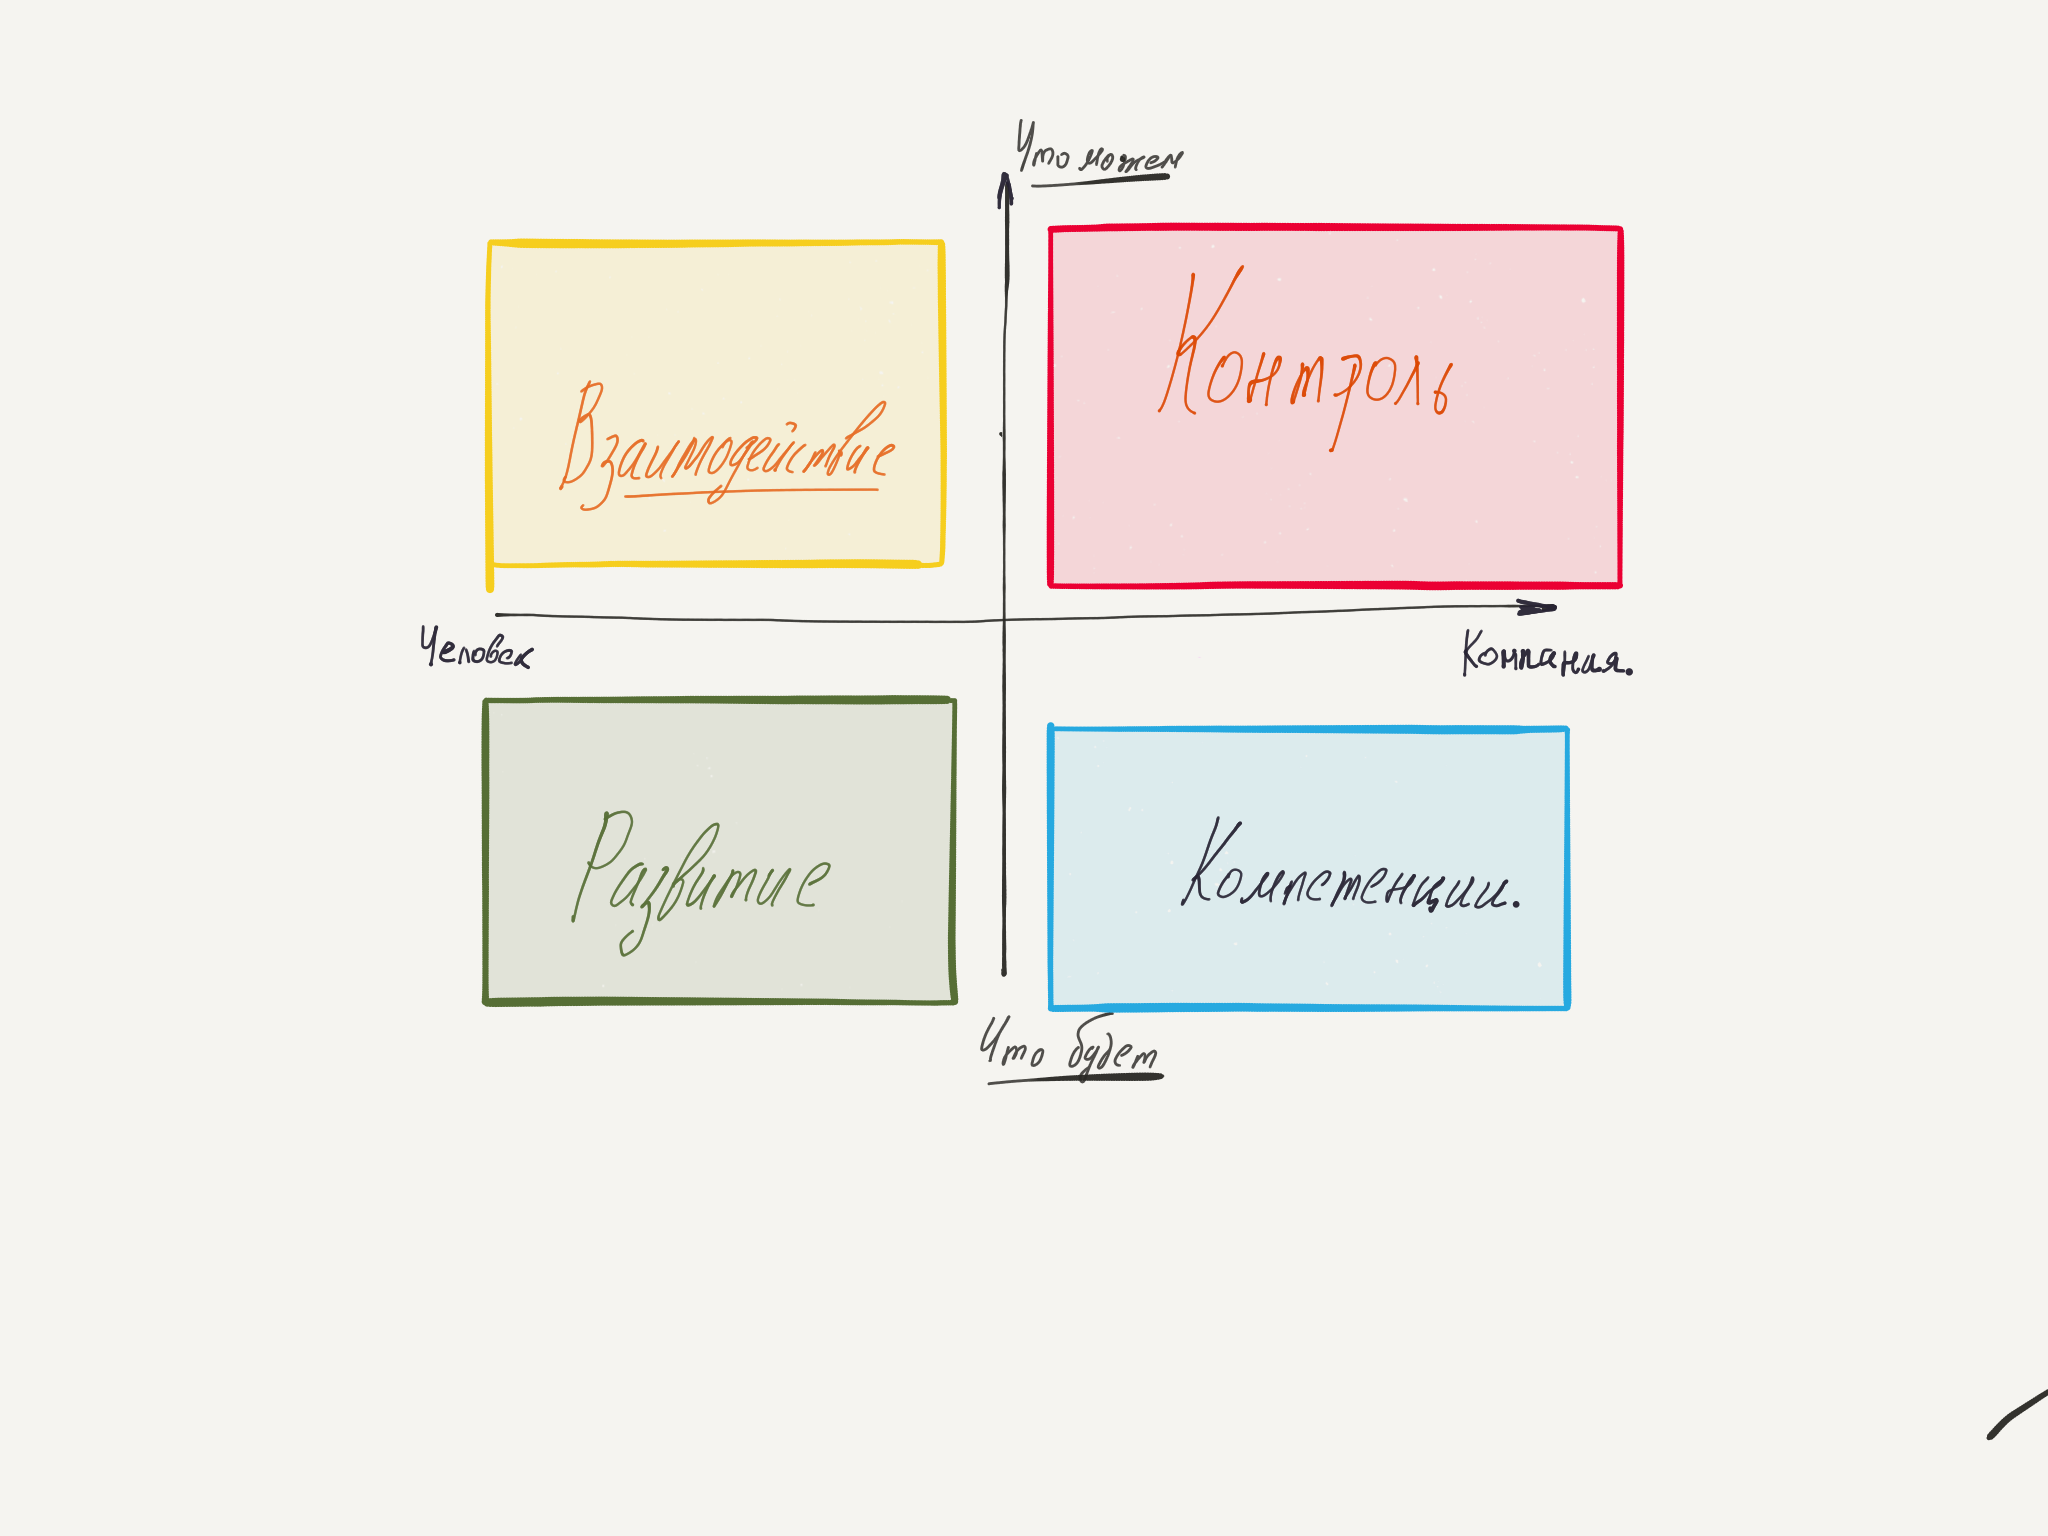 Что можем
Взаимодействие
Контроль
Человек
Компания.
Развитие
Компетенции.
Что будет